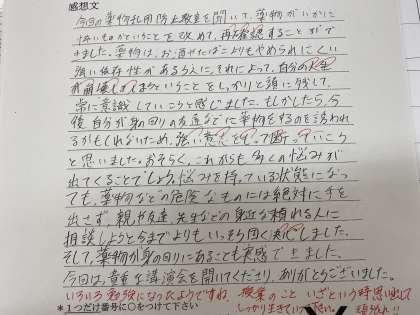 感想文
今回の薬物乱用防止教室を聞いて、薬物がいかに
怖いものかということを改めて、再確認することがで
きました。薬物は、お酒やたばこよりもやめられにくい
強い依存性があるうえに、それによって、自分の人生
が崩壊してしまうということをしっかりと頭に残して、
常に意識していこうと感じました。もしかしたら、今
後自分が身の回りの友達などに薬物をするのを誘われ
るかもしれないため、強い意志をもって断っていこう
と思いました。おそらく、これからも多くの悩みが
出てくることでしょう。悩みを持っている状態になっ
ても、薬物などの危険なものには絶対に手を
出さず、親や友達、先生などの身近な頼れる人に
相談しようと今までよりもいっそう固く決心しました。
そして、薬物が身の回りにあることも実感できました。
今回は、貴重な講演会を開いてくださり、ありがとうございました。
いろいろ勉強になったようですね。授業のこと いざという時思い出して
*1つだけ番号に○をつけて下さい しっかり生きていって下さい。